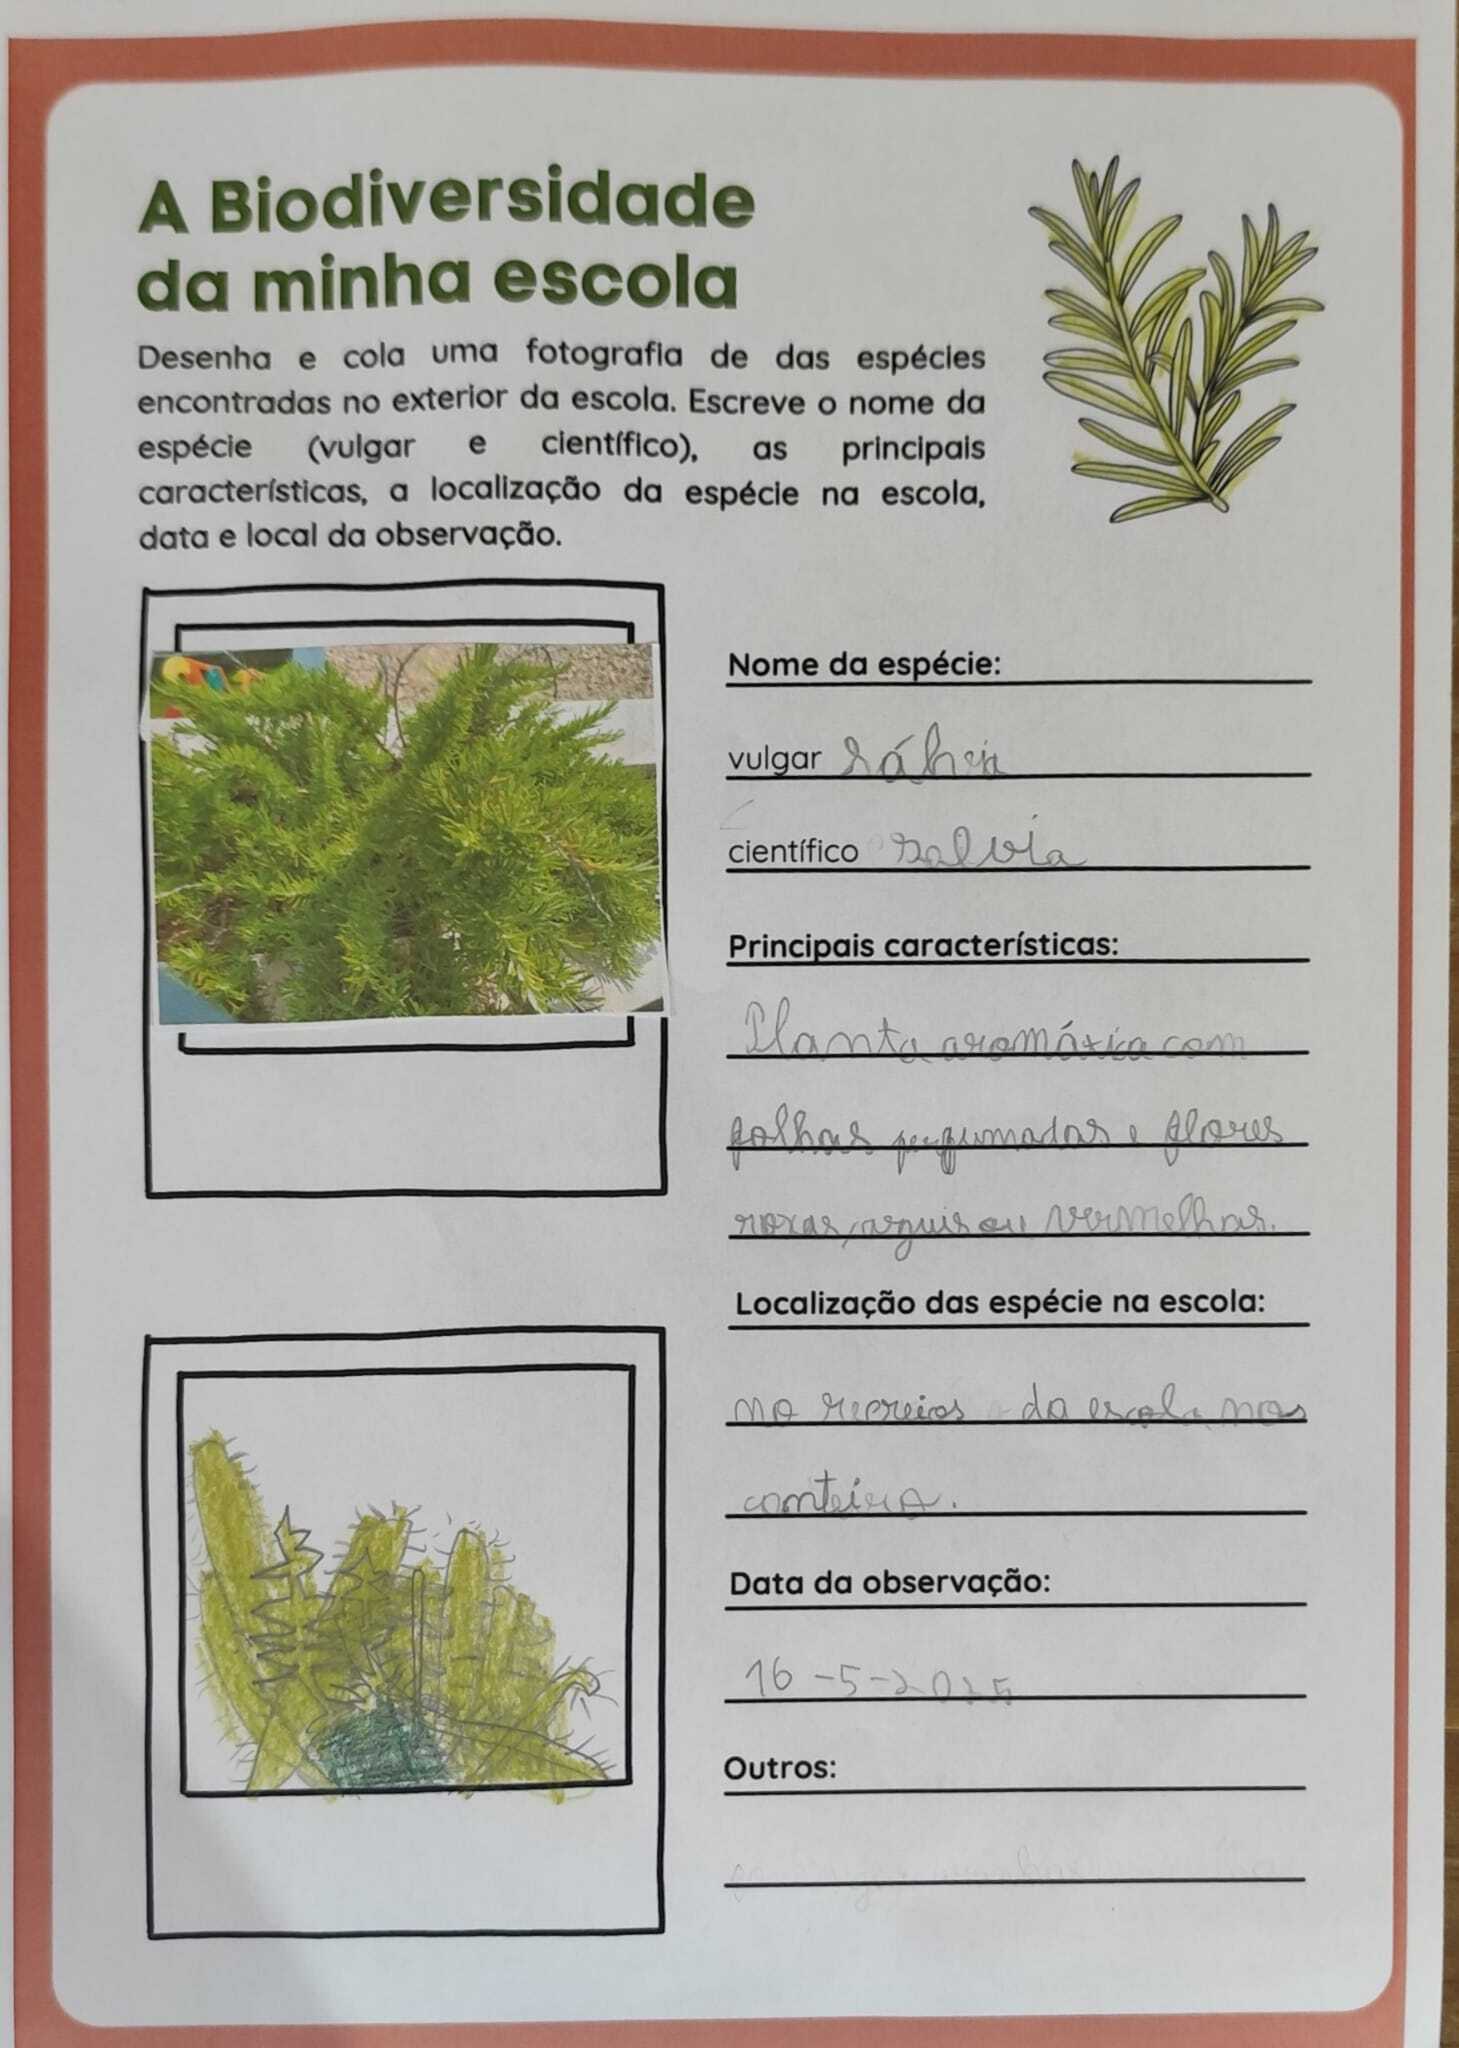 A Biodiversidade
da minha escola
Desenha e cola uma fotografia de das espécies
encontradas no exterior da escola. Escreve o nome da
espécie (vulgar e científico), as principais
características, a localização da espécie na escola,
data e local da observação.
Nome da espécie:
vulgar
científico salvia
Principais características:
Planta aromática com
folhas perfumadas e flores
roxas, azuis ou vermelhas.
Localização das espécie na escola:
no recreios da escola nos
canteiro.
Data da observação:
16-5-2025
Outros: